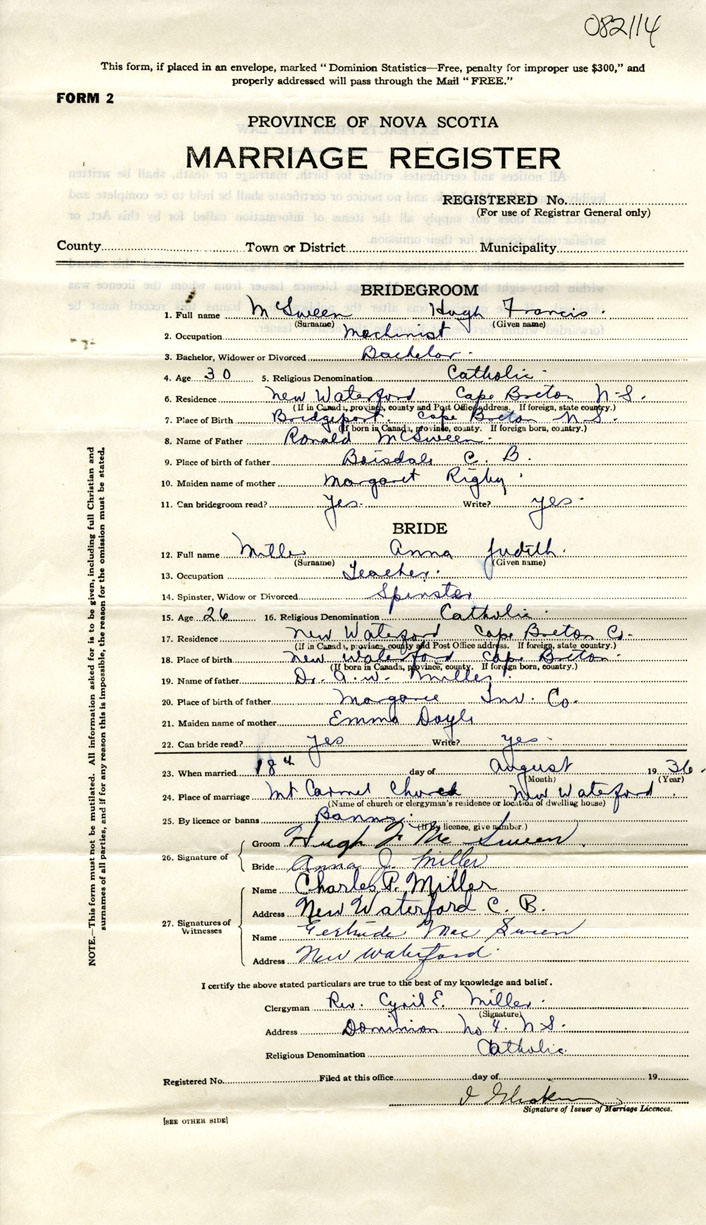 082114
This form, if placed in an envelope, marked "Dominion Statistics—Free, penalty for improper use $300," and
properly addressed will pass through the Mail "FREE."
FORM 2
PROVINCE OF NOVA SCOTIA
MARRIAGE REGISTER
REGISTERED No.
(For use of Registrar General only)
County Town or District Municipality
BRIDEGROOM
1. Full name McSween Hugh Francis.
(Surname) (Given name)
2. Occupation Mechinist
3. Bachelor, Widower or Divorced Bachelor.
4. Age 30 5. Religious Denomination Catholic.
6. Residence New Waterford Cape Breton N-S.
(If in Canada, province, county and Post Office address. If foreign, state country.)
7. Place of Birth Bridgeport Cape Breton N.S.
(If born in Canada, province, county. If foreign born, country.)
8. Name of Father Ronald McSween.
9. Place of birth of father Boisdale C. B.
10. Maiden name of mother Margaret Rigby.
11. Can bridegroom read? Yes. Write? Yes.
BRIDE
12. Full name Miller Anna Judith.
(Surname) (Given name)
13. Occupation Teacher.
14. Spinster, Widow or Divorced Spinster
15. Age 26 16. Religious Denomination Catholic.
17. Residence New Waterford Cape Breton Co.
(If in Canada, province, county and Post Office address. If foreign, state country.)
18. Place of birth New Waterford Cape Breton.
(If born in Canada, province, county. If foreign born, country.)
19. Name of father Dr. A. W. Miller.
20. Place of birth of father Margaree Inv. Co.
21. Maiden name of mother Emma Doyle
22. Can bride read? Yes Write? Yes.
23. When married 18th day of August 1936.
(Month) (Year)
24. Place of marriage Mt Carmel Church New Waterford.
(Name of church or clergyman's residence or location of dwelling house)
25. By licence or banns Banns.
(If by licence, give number.)
26. Signature of
Groom Hugh F. Mc Sween
Bride Anna J. Miller
27. Signatures of Witnesses
Name Charles P. Miller
Address New Waterford C. B.
Name Gertrude Mac Sween
Address New Waterford.
I certify the above stated particulars are true to the best of my knowledge and belief.
Clergyman Rev. Cyril E. Miller.
(Signature)
Address Dominion No 4. N.S.
Religious Denomination Catholic.
Registered No. Filed at this office day of 19
Signature of Issuer of Marriage Licences.
[SEE OTHER SIDE]
NOTE.—This form must not be mutilated. All information asked for is to be given, including full Christian and
surnames of all parties, and if for any reason this is impossible, the reason for the omission must be stated.